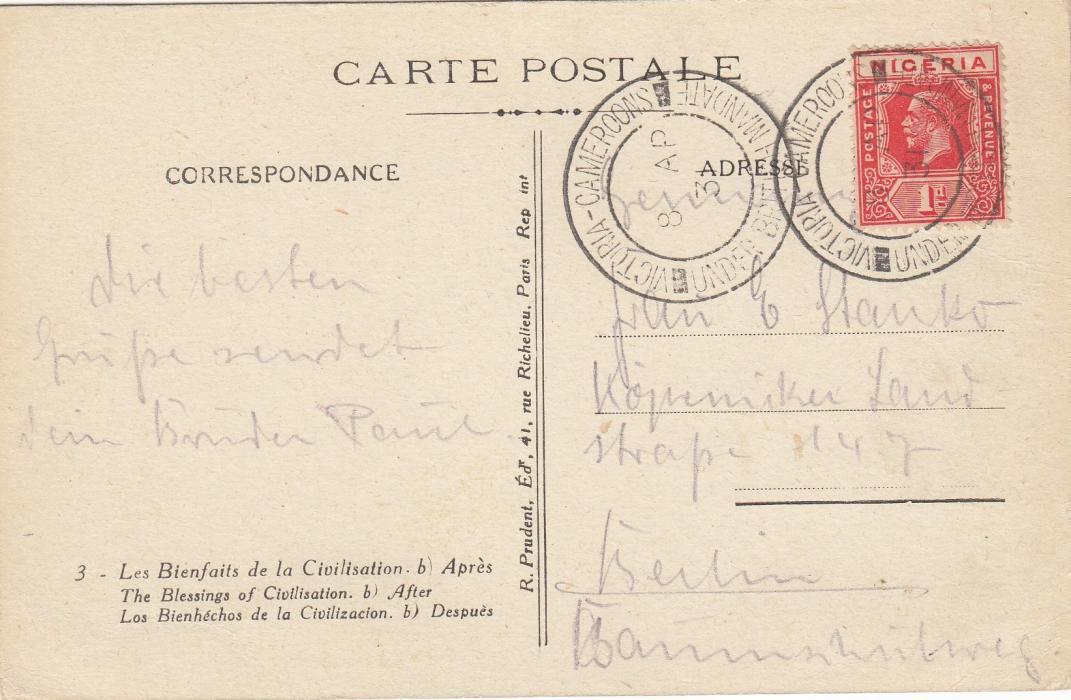 CARTE POSTALE
CORRESPONDANCE
ADRESSE
NIGERIA
POSTAGE
& REVENUE
1D
VICTORIA-CAMEROONS
UNDER MANDATE
8 AP
3
VICTORIA-CAMEROO
UNDER
31
Die besten
Grüße sendet
dein Bruder Paul.
Frau E Stanko
Köpenicker Land
straße 147
Berlin
Baumschulweg.
R. Prudent, Édr, 41, rue Richelieu, Paris Rep int
3 - Les Bienfaits de la Civilisation. b) Après
The Blessings of Civilisation. b) After
Los Bienhéchos de la Civilizacion. b) Despuès